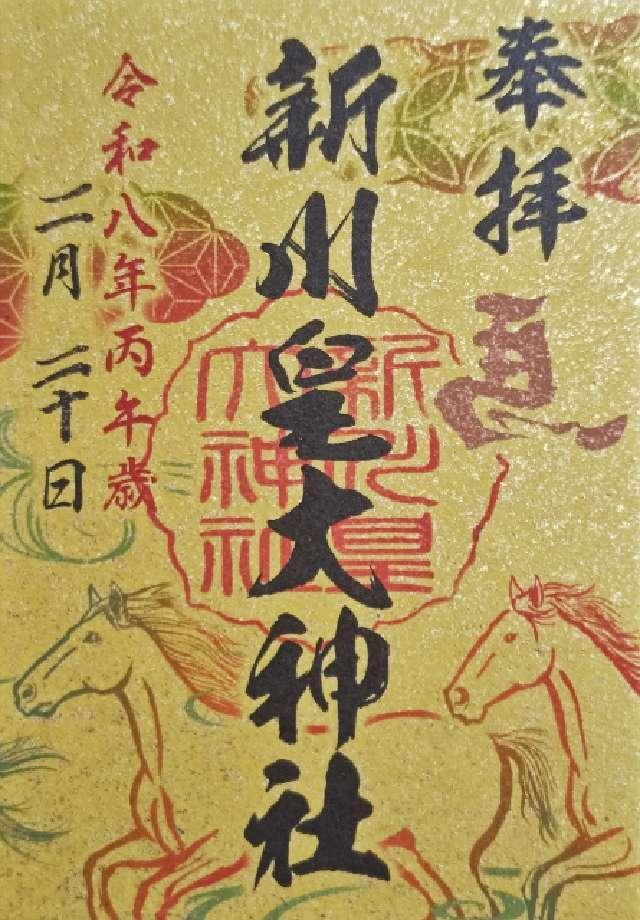 奉拝
新川皇大神社
新川皇
大神社
令和八年丙午歳
二月二十日